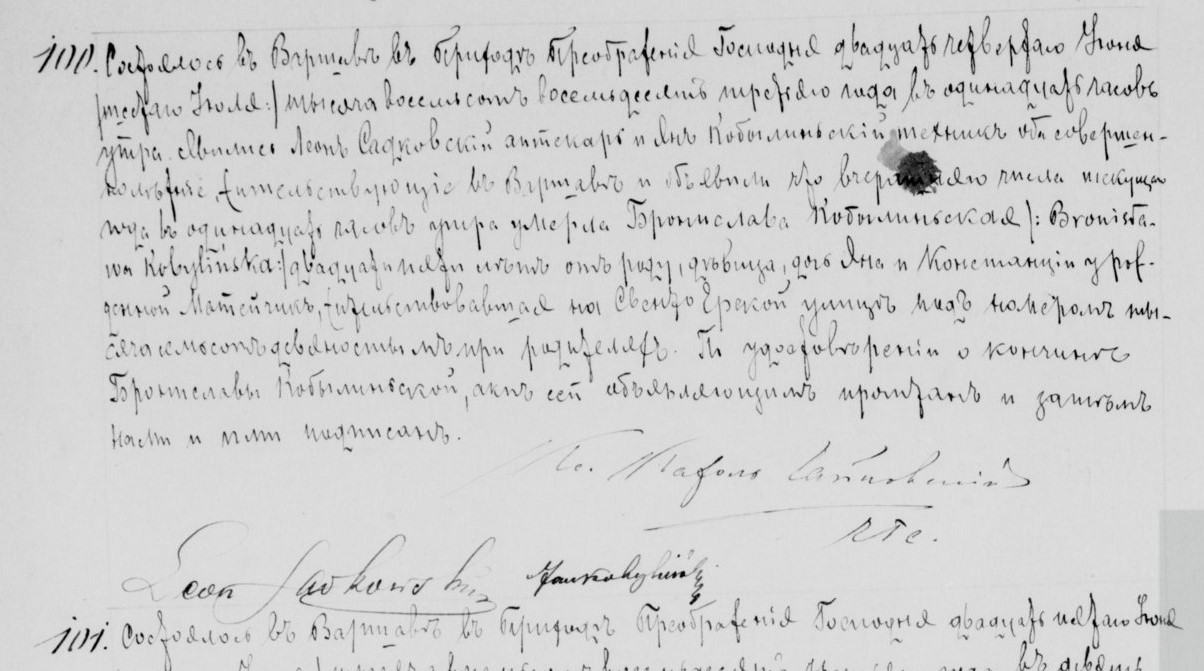 100. Состоялось въ Варшавѣ въ Приходѣ Преображенія Господня двадцать четвертаго Іюня
/шестаго Іюля:/ тысяча восемьсотъ восемьдесятъ третьяго года въ одинадцать часовъ
утра. Явились Леонъ Садковскій аптекарь и Янъ Кобылиньскій техникъ оба совершен-
нолѣтніе, жительствующіе въ Варшавѣ и объявили что вчерашняго числа текущаго
года въ одинадцать часовъ утра умерла Брониславa Кобылиньская /: Bronisła-
wa Kobylińska:/ двадцати пяти лѣтъ отъ роду, дѣвица, дочь Яна и Констанціи урож-
денной Матейчикъ, жительствовавшая на Свенто Ерской улицѣ подъ номеромъ ты-
сяча семьсотъ девяностымъ при родителяхъ. По удостовѣреніи о кончинѣ
Брониславы Кобылиньской, актъ сей объявляющимъ прочтанъ и затѣмъ
нами и ими подписанъ.
Кс. Кароль
Leon Sadkowski Jan Kobyliński
101. Состоялось въ Варшавѣ въ Приходѣ Преображенія Господня двадцать пятаго Іюня